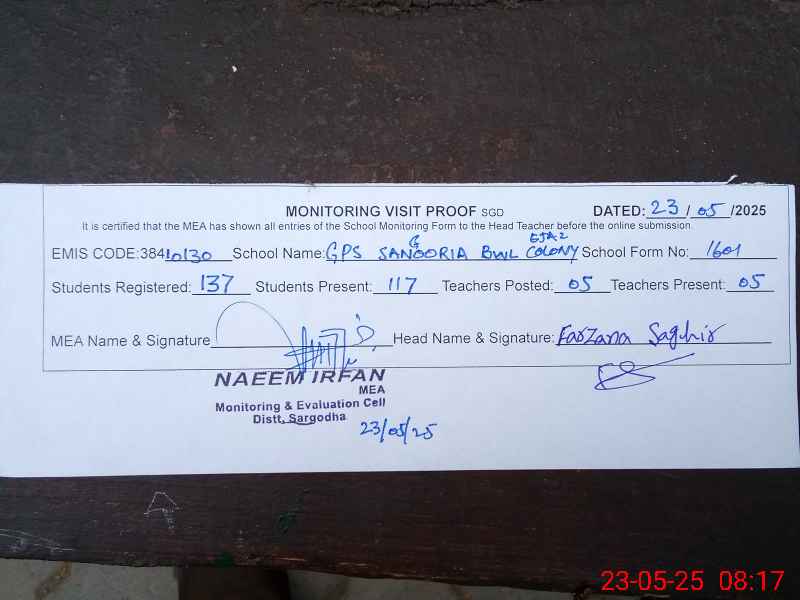 MONITORING VISIT PROOF SGD DATED: 23 / 05 /2025
It is certified that the MEA has shown all entries of the School Monitoring Form to the Head Teacher before the online submission.
EMIS CODE:38410130 School Name: GPS SANGORIA BWL COLONY School Form No: 1601
Students Registered: 137 Students Present: 117 Teachers Posted: 05 Teachers Present: 05
MEA Name & Signature Head Name & Signature: Farzana Saghir
NAEEM IRFAN
MEA
Monitoring & Evaluation Cell
Distt, Sargodha
23/05/25
23-05-25 08:17